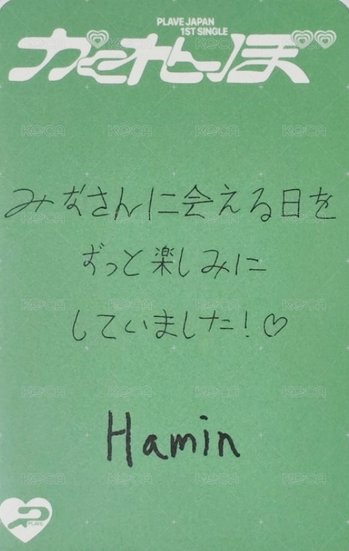 PLAVE JAPAN
1ST SINGLE
かくれんぼ
みなさんに会える日を
ずっと楽しみに
していました！♡
Hamin
PLAVE